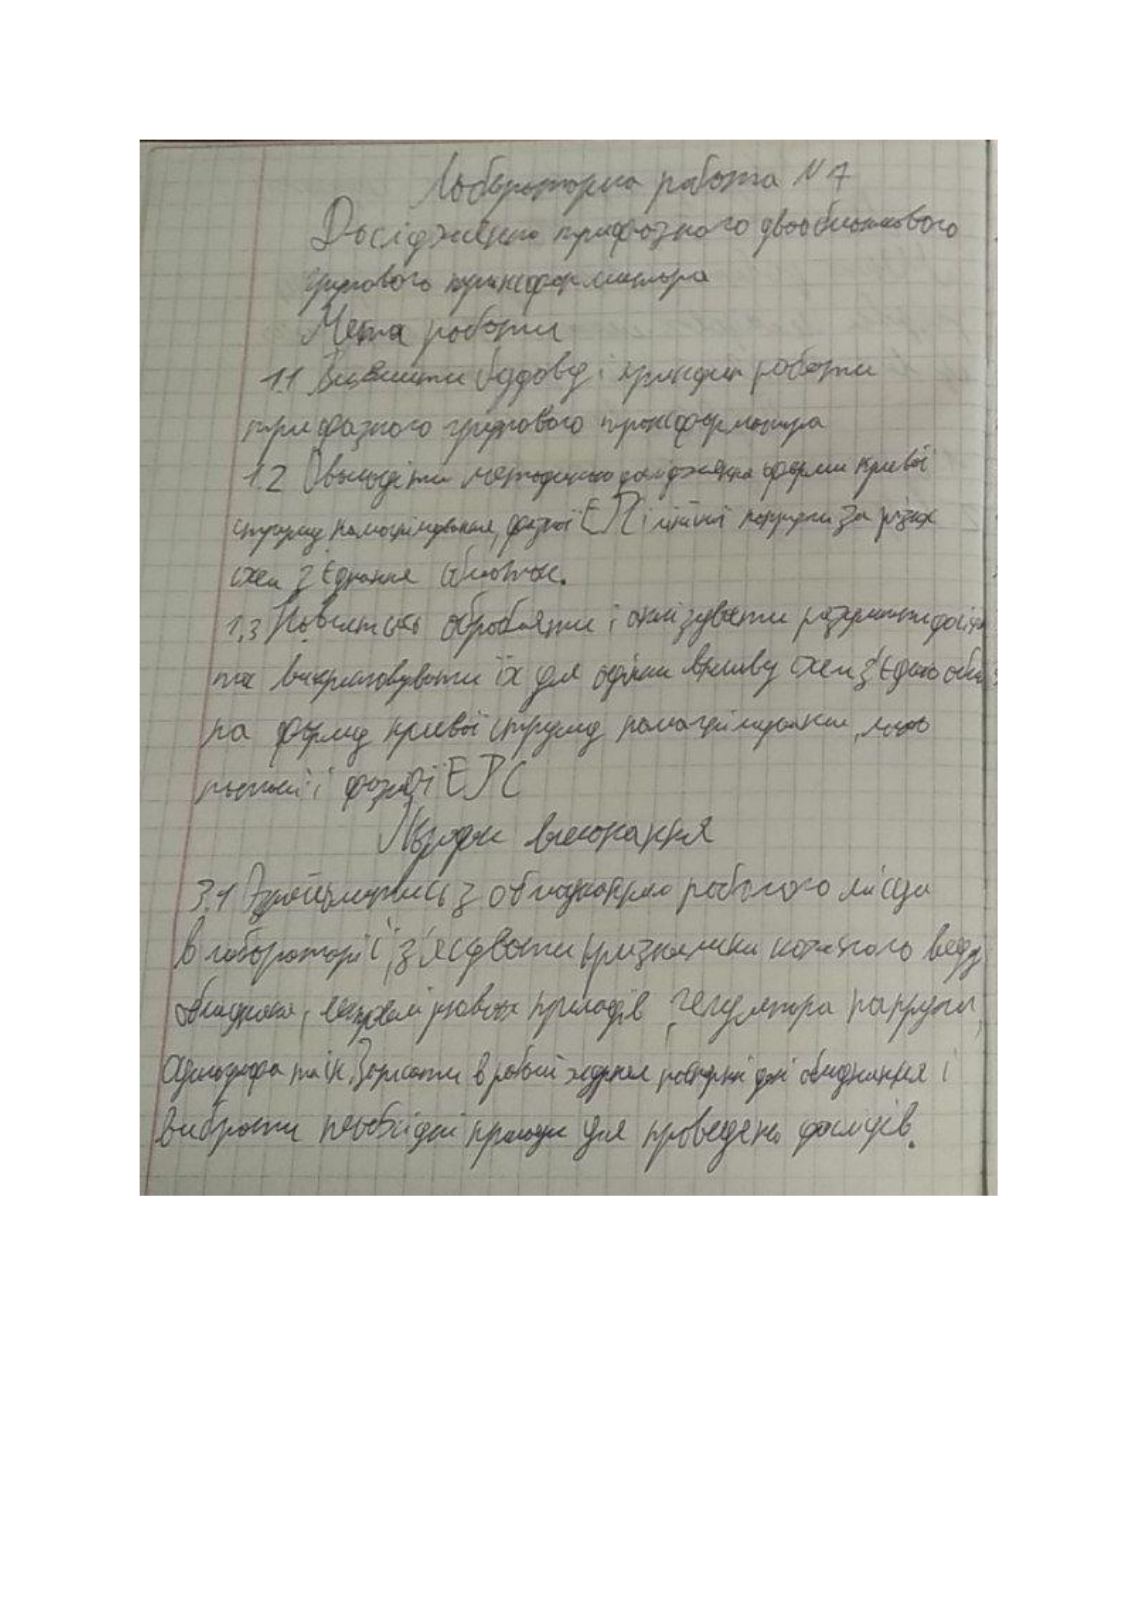 Лабораторна робота N 7
Дослідженя трифазного двообмоткового
групового трансформатора
Мета роботи
1.1 Вивчити будову і принцип роботи
трифазного групового трансформатора
1.2 Оволодіти методикою дослідження форми кривої
струму намагнічування, фазної ЕРС і лінійної напруги за різних
схем з'єднання обмоток.
1.3 Навчитись обробляти і аналізувати результати
та використовувати їх для оцінки впливу схем
на форму кривої струму намагнічування,
і фазної ЕРС
Порядок виконання
3.1 з обладнанням робочого місця
в лабораторії, з'ясувати призначення кожного виду
обладнання, приладів, регулятора напруги,
та ін. Записати в робочий журнал дані обладнання і
вибрати необхідні прилади для проведеня дослідів.